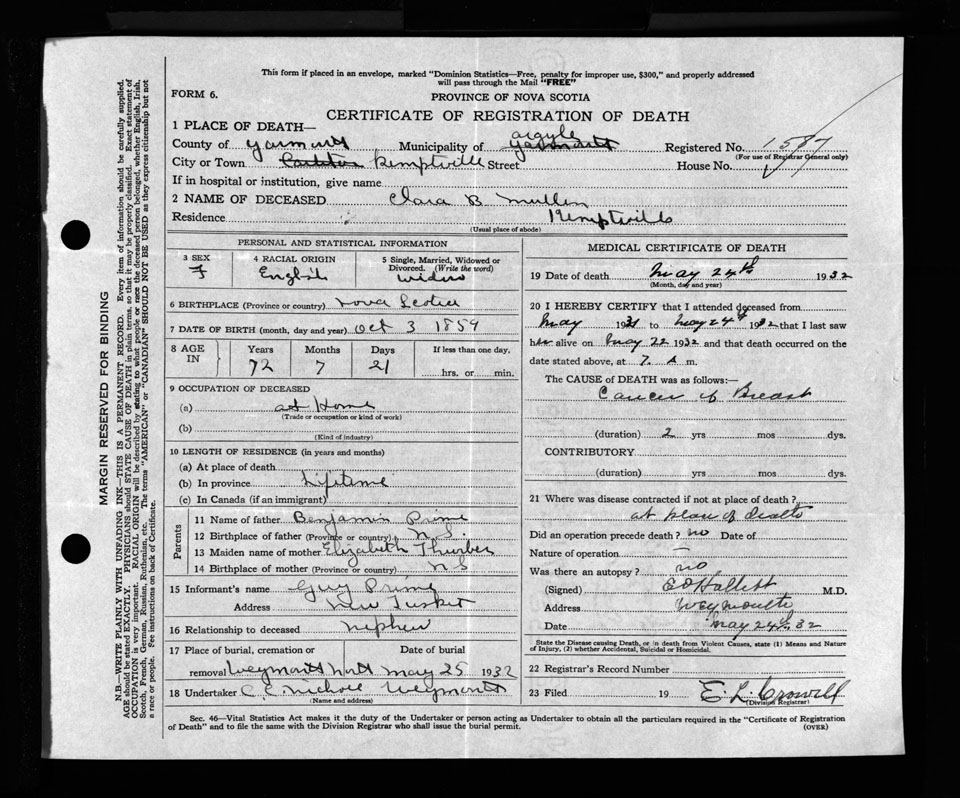 This form if placed in an envelope, marked "Dominion Statistics—Free, penalty for improper use, $300," and properly addressed
will pass through the Mail "FREE"
FORM 6.
PROVINCE OF NOVA SCOTIA
CERTIFICATE OF REGISTRATION OF DEATH
1 PLACE OF DEATH—
Argyle
County of Yarmouth Municipality of Yarmouth Registered No. 1587
(For use of Registrar General only)
City or Town Kemptville Street House No.
If in hospital or institution, give name
2 NAME OF DECEASED Clara B Mullen
Residence Kemptville
(Usual place of abode)
PERSONAL AND STATISTICAL INFORMATION
3 SEX 4 RACIAL ORIGIN 5 Single, Married, Widowed or Divorced. (Write the word)
F English widow
6 BIRTHPLACE (Province or country) Nova Scotia
7 DATE OF BIRTH (month, day and year) Oct 3 1859
8 AGE IN Years Months Days If less than one day,
72 7 21 hrs. or min.
9 OCCUPATION OF DECEASED
(a) at Home
(Trade or occupation or kind of work)
(b)
(Kind of industry)
10 LENGTH OF RESIDENCE (in years and months)
(a) At place of death
(b) In province Lifetime
(c) In Canada (if an immigrant)
Parents
11 Name of father Benjamin Prime
12 Birthplace of father (Province or country) N.S.
13 Maiden name of mother Elizabeth Thurber
14 Birthplace of mother (Province or country) NS
15 Informant's name Guy Prime
Address New Tusket
16 Relationship to deceased nephew
17 Place of burial, cremation or Date of burial
removal Weymouth North May 25 1932
18 Undertaker C. E. Nichols Weymouth
(Name and address)
MEDICAL CERTIFICATE OF DEATH
19 Date of death May 24th 1932
(Month, day and year)
20 I HEREBY CERTIFY that I attended deceased from
May 1931 to May 24th 1932 that I last saw
her alive on May 22 1932 and that death occurred on the
date stated above, at 7. A m.
The CAUSE of DEATH was as follows:—
Cancer of Breast
(duration) 2 yrs mos dys.
CONTRIBUTORY
(duration) yrs mos dys.
21 Where was disease contracted if not at place of death?
at place of death
Did an operation precede death? no Date of
Nature of operation —
Was there an autopsy? no
(Signed) E O Hallett M.D.
Address Weymouth
Date May 24th, 32
State the Disease causing Death, or in death from Violent Causes, state (1) Means and Nature
of Injury, (2) whether Accidental, Suicidal or Homicidal.
22 Registrar's Record Number
23 Filed 19 E. L. Crowell
(Division Registrar)
Sec. 46—Vital Statistics Act makes it the duty of the Undertaker or person acting as Undertaker to obtain all the particulars required in the "Certificate of Registration
of Death" and to file the same with the Division Registrar who shall issue the burial permit. (OVER)
MARGIN RESERVED FOR BINDING
N.B.—WRITE PLAINLY WITH UNFADING INK—THIS IS A PERMANENT RECORD. Every item of information should be carefully supplied.
AGE should be stated EXACTLY. PHYSICIANS should STATE CAUSE OF DEATH in plain terms, so that it may be properly classified. Exact statement of
OCCUPATION is very important. RACIAL ORIGIN will be described by stating to what people or race the deceased person belonged, whether English, Irish,
Scotch, French, German, Russian, Ruthenian, etc. The terms "AMERICAN" or "CANADIAN" SHOULD NOT BE USED as they express citizenship but not
a race or people. See instructions on back of Certificate.